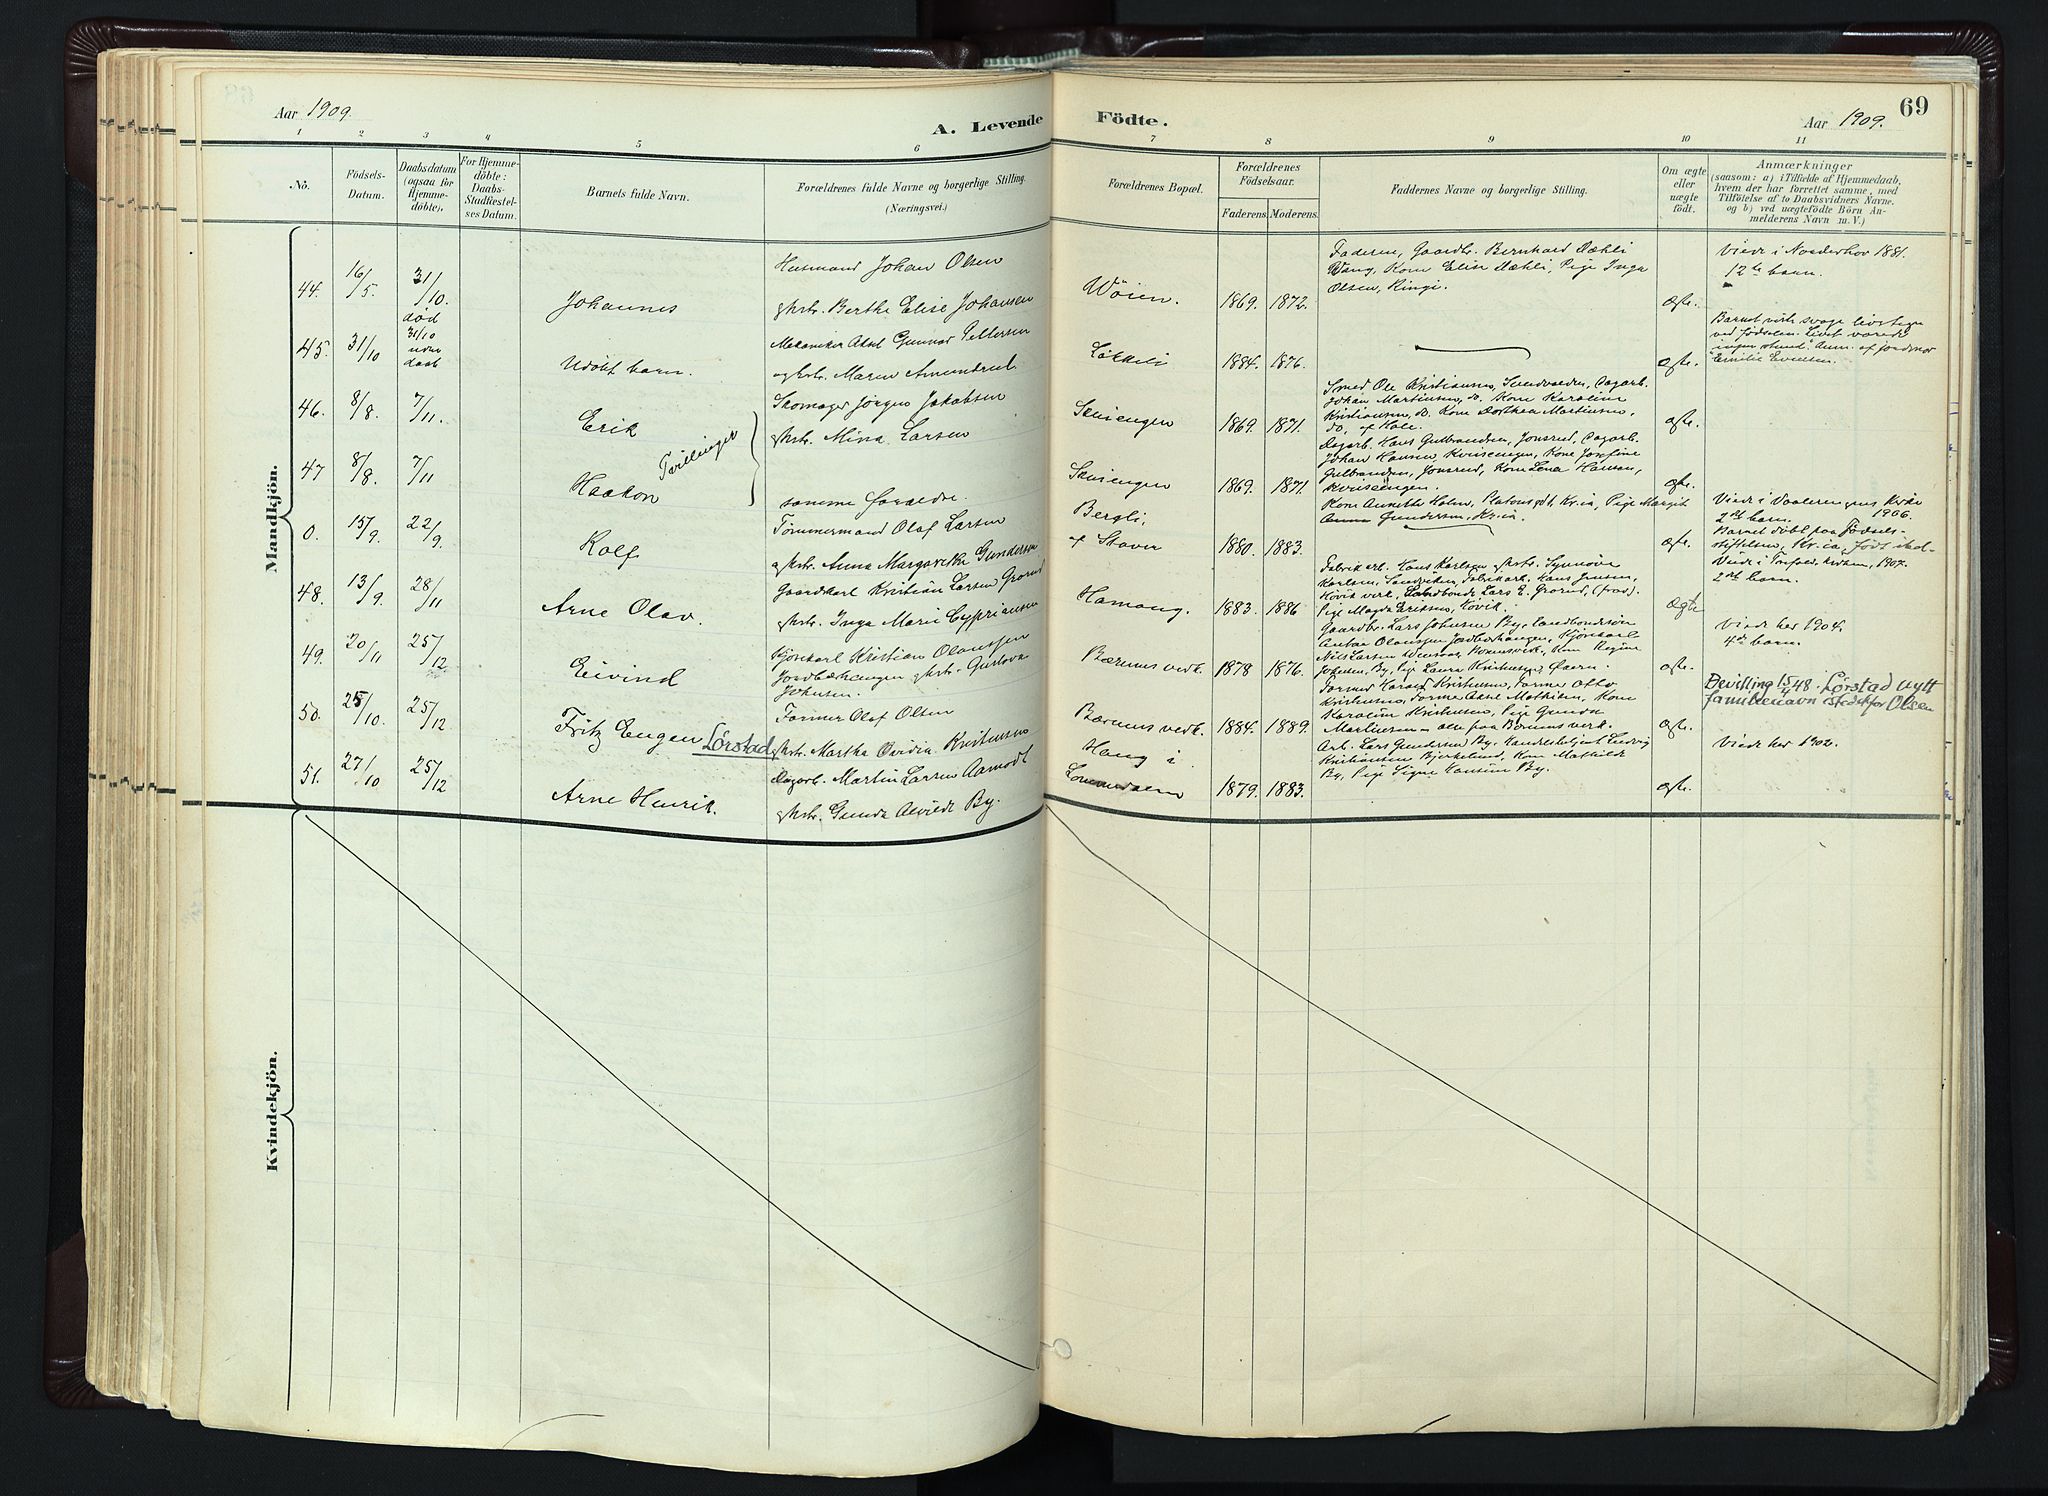 Aar 1909.
A. Levende
Födte.
Aar 1909.
69
1 2 3 4 5 6 7 8 9 10 11
No.
Födsels-
Datum.
Daabsdatum
(ogsaa for
Hjemme-
döbte).
For Hjemme-
döbte:
Daabs-
Stadfæstel-
ses Datum.
Barnets fulde Navn.
Forældrenes fulde Navne og borgerlige Stilling.
(Næringsvei.)
Forældrenes Bopæl.
Forældrenes
Födselsaar.
Faderens. Moderens.
Faddernes Navne og borgerlige Stilling.
Om ægte
eller
uægte
födt.
Anmærkninger
(saasom: a) i Tilfælde af Hjemmedaab,
hvem der har forrettet samme, med
Tilföielse af to Daabsvidners Navne.
og b) ved uægtefödte Börn An-
melderens Navn m. V.)
Mandkjön.
44. 16/5. 31/10. Johannes
Husmand Johan Olsen
ghstr. Berthe Elise Johansen
Wøien. 1869. 1872.
Faderen, Gaardbr. Bernhard Dæhli
Vang, Kone Elise Dæhli, Pige Inga
Olsen, Ringi.
ægte.
Viede i Norderhov 1881.
12te barn.
45. 31/10 død 31/10 uden daab
Udöbt barn.
Mekaniker Aksel Gunnar Pettersen
og hstr. Maren Amundrud.
Løkkeli 1884. 1876.
ægte.
Barnet viste svage livstegn
ved fødselen. Livet varede
ingen stund. Anm. af jordmor
Emilie Evensen.
46. 8/8. 7/11. Erik
Tvillinger
Skomager Jörgen Jakobsen
ghstr. Mina Larsen
Skuiengen 1869. 1871.
Smed Ole Kristiansen, Sundvolden, Dagarb.
Johan Martinsen, do. Kone Karoline
Kristiansen, do. Kone Dorthea Martinsen,
do, af Hole.
ægte.
47 8/8. 7/11 Haakon
samme foraeldre
Skuiengen 1869. 1871.
Dagarb. Hans Gulbrandsen, Jonsrud, Dagarb.
Johan Hansen, Kveisengen, Kone Josefine
Gulbrandsen, Jonsrud, Kone Lena Hansen,
Kveisengen.
ægte.
0. 15/9. 22/9. Rolf
Tømmermand Olaf Larsen
ghstr. Anna Margarethe Gundersen
Bergli,
af Staver 1880. 1883.
Kone Annette Holm, Platousgdt, Kr.ia, Pige Margit
Gundersen, Kr.ia.
ægte.
Viede i Vaalerengens Kirke
1906.
2det barn.
Barnet döbt paa Födsels-
stiftelsen, Kr.ia, født isted-
48. 13/9. 28/11 Arne Olav
Gaardkarl Kristian Larsen Grorud
ghstr. Inga Marie Cypriansen
Hamang. 1883. 1886
Fabrikarb. Hans Karlsen ghstr. Synnöve
Karlsen, Sandviken, Fabrikarb. Hans Jensen,
Høvik verk, Landbonde Lars E. Grorud, (frav).
Pige Magda Eriksen, Høvik.
Ægte
1907.
2det barn.
49. 20/11 25/12 Eivind
Kjørekarl Kristian Olaussen
Jordbærhaugen ghstr. Gustava
Johnsen.
Bærums verk. 1878 1876.
Gaardbr. Lars Johnsen By, Landbondesøn
Anton Olaussen Jordbærhaugen, Kjørekarl
Nils Larsen Bærumsverk, Kone Regine
Johnsen, By, Pige Laura Kristiansen, Øvern.
ægte.
Viede her 1904.
4de barn.
50. 25/10. 25/12 Fritz Eugen Lørstad
Former Olaf Olsen
ghstr. Martha Ovidia Kristensen
Bærums verk. 1884. 1889.
Former Harald Kristensen, Former Otto
Kristensen, Former Arne Mathisen, Kone
Karoline Kristensen, Pige Gunda
Martinsen – alle paa Bærums verk.
ægte.
Bevilling 15/4 48. Lørstad nytt
familienavn istedetfor Olsen
51. 27/10 25/12 Arne Henrik.
Dagarb. Martin Larsen Aamodt
ghstr. Gunda Alvilde By.
Haug i
Lommedalen 1879. 1883.
Arb. Lars Gundersen By, Handelsbetjent Ludvig
Kristiansen Bjerkelund, Kone Mathilde
By, Pige Signe Hansine By.
ægte.
Viede her 1902.
Kvindekjön.